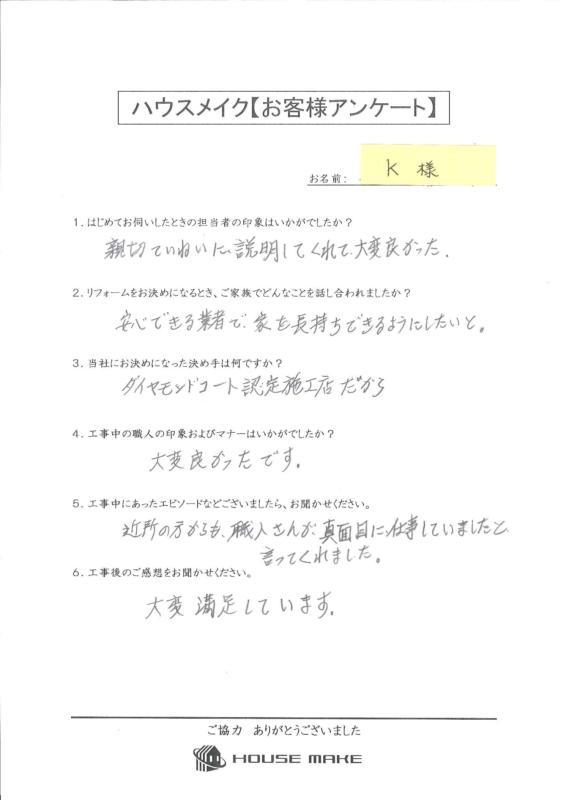 ハウスメイク【お客様アンケート】
お名前: K 様
1．はじめてお伺いしたときの担当者の印象はいかがでしたか？
親切ていねいに、説明してくれて、大変良かった．
2．リフォームをお決めになるとき、ご家族でどんなことを話し合われましたか？
安心できる業者で、家を長持ちできるようにしたいと。
3．当社にお決めになった決め手は何ですか？
ダイヤモンドコート認定施工店だから
4．工事中の職人の印象およびマナーはいかがでしたか？
大変良かったです。
5．工事中にあったエピソードなどございましたら、お聞かせください。
近所の方からも、職人さんが、真面目に仕事していましたと
言ってくれました。
6．工事後のご感想をお聞かせください。
大変満足しています。
ご協力　ありがとうございました
HOUSE MAKE